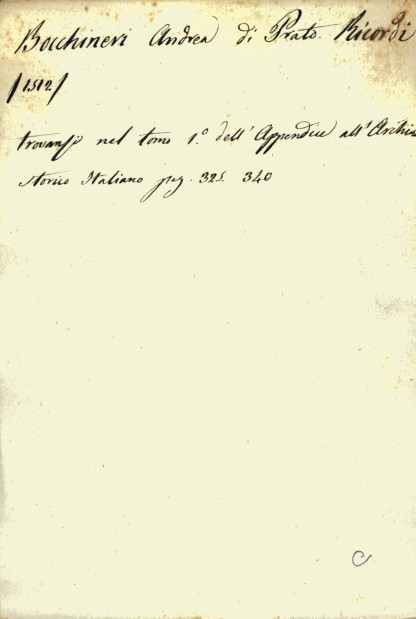 Bocchineri Andrea di Prato. Ricordi
/1512/
trovansi nel tomo 1.° dell'Appendice all'Archivio
storico Italiano pag. 325. 340
C